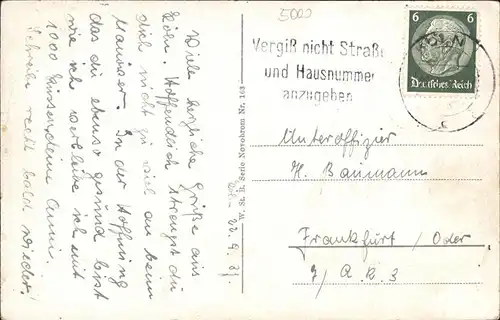 5000
Vergiß nicht Straße
und Hausnummer
anzugeben
KÖLN
6 6
Deutsches Reich
W. St. B. Serie Novochrom Nr. 163
Unteroffizier
H. Baumann
Frankfurt / Oder
7/ A. R. 3
22. 9. 37.
Viele herzliche Grüße aus
Köln. Hoffendlich strengst du
dich nicht zu viel an beim
Manöver. In der Hoffnung
das du ebenso gesund bist
wie ich verbleibe ich mit
1000
Schreibe recht bald wieder!